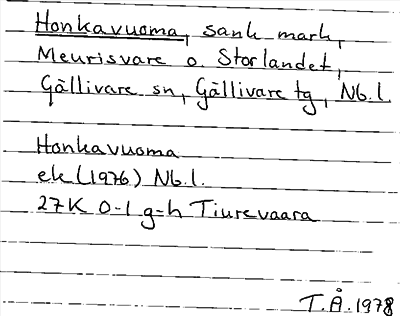 Honkavuoma, sank mark,
Meurisvare o. Storlandet,
Gällivare sn, Gällivare tg, Nb.l.
Honkavuoma
ek (1976) Nb.l.
27K 0-1 g-h Tiurevaara
T.Å. 1978